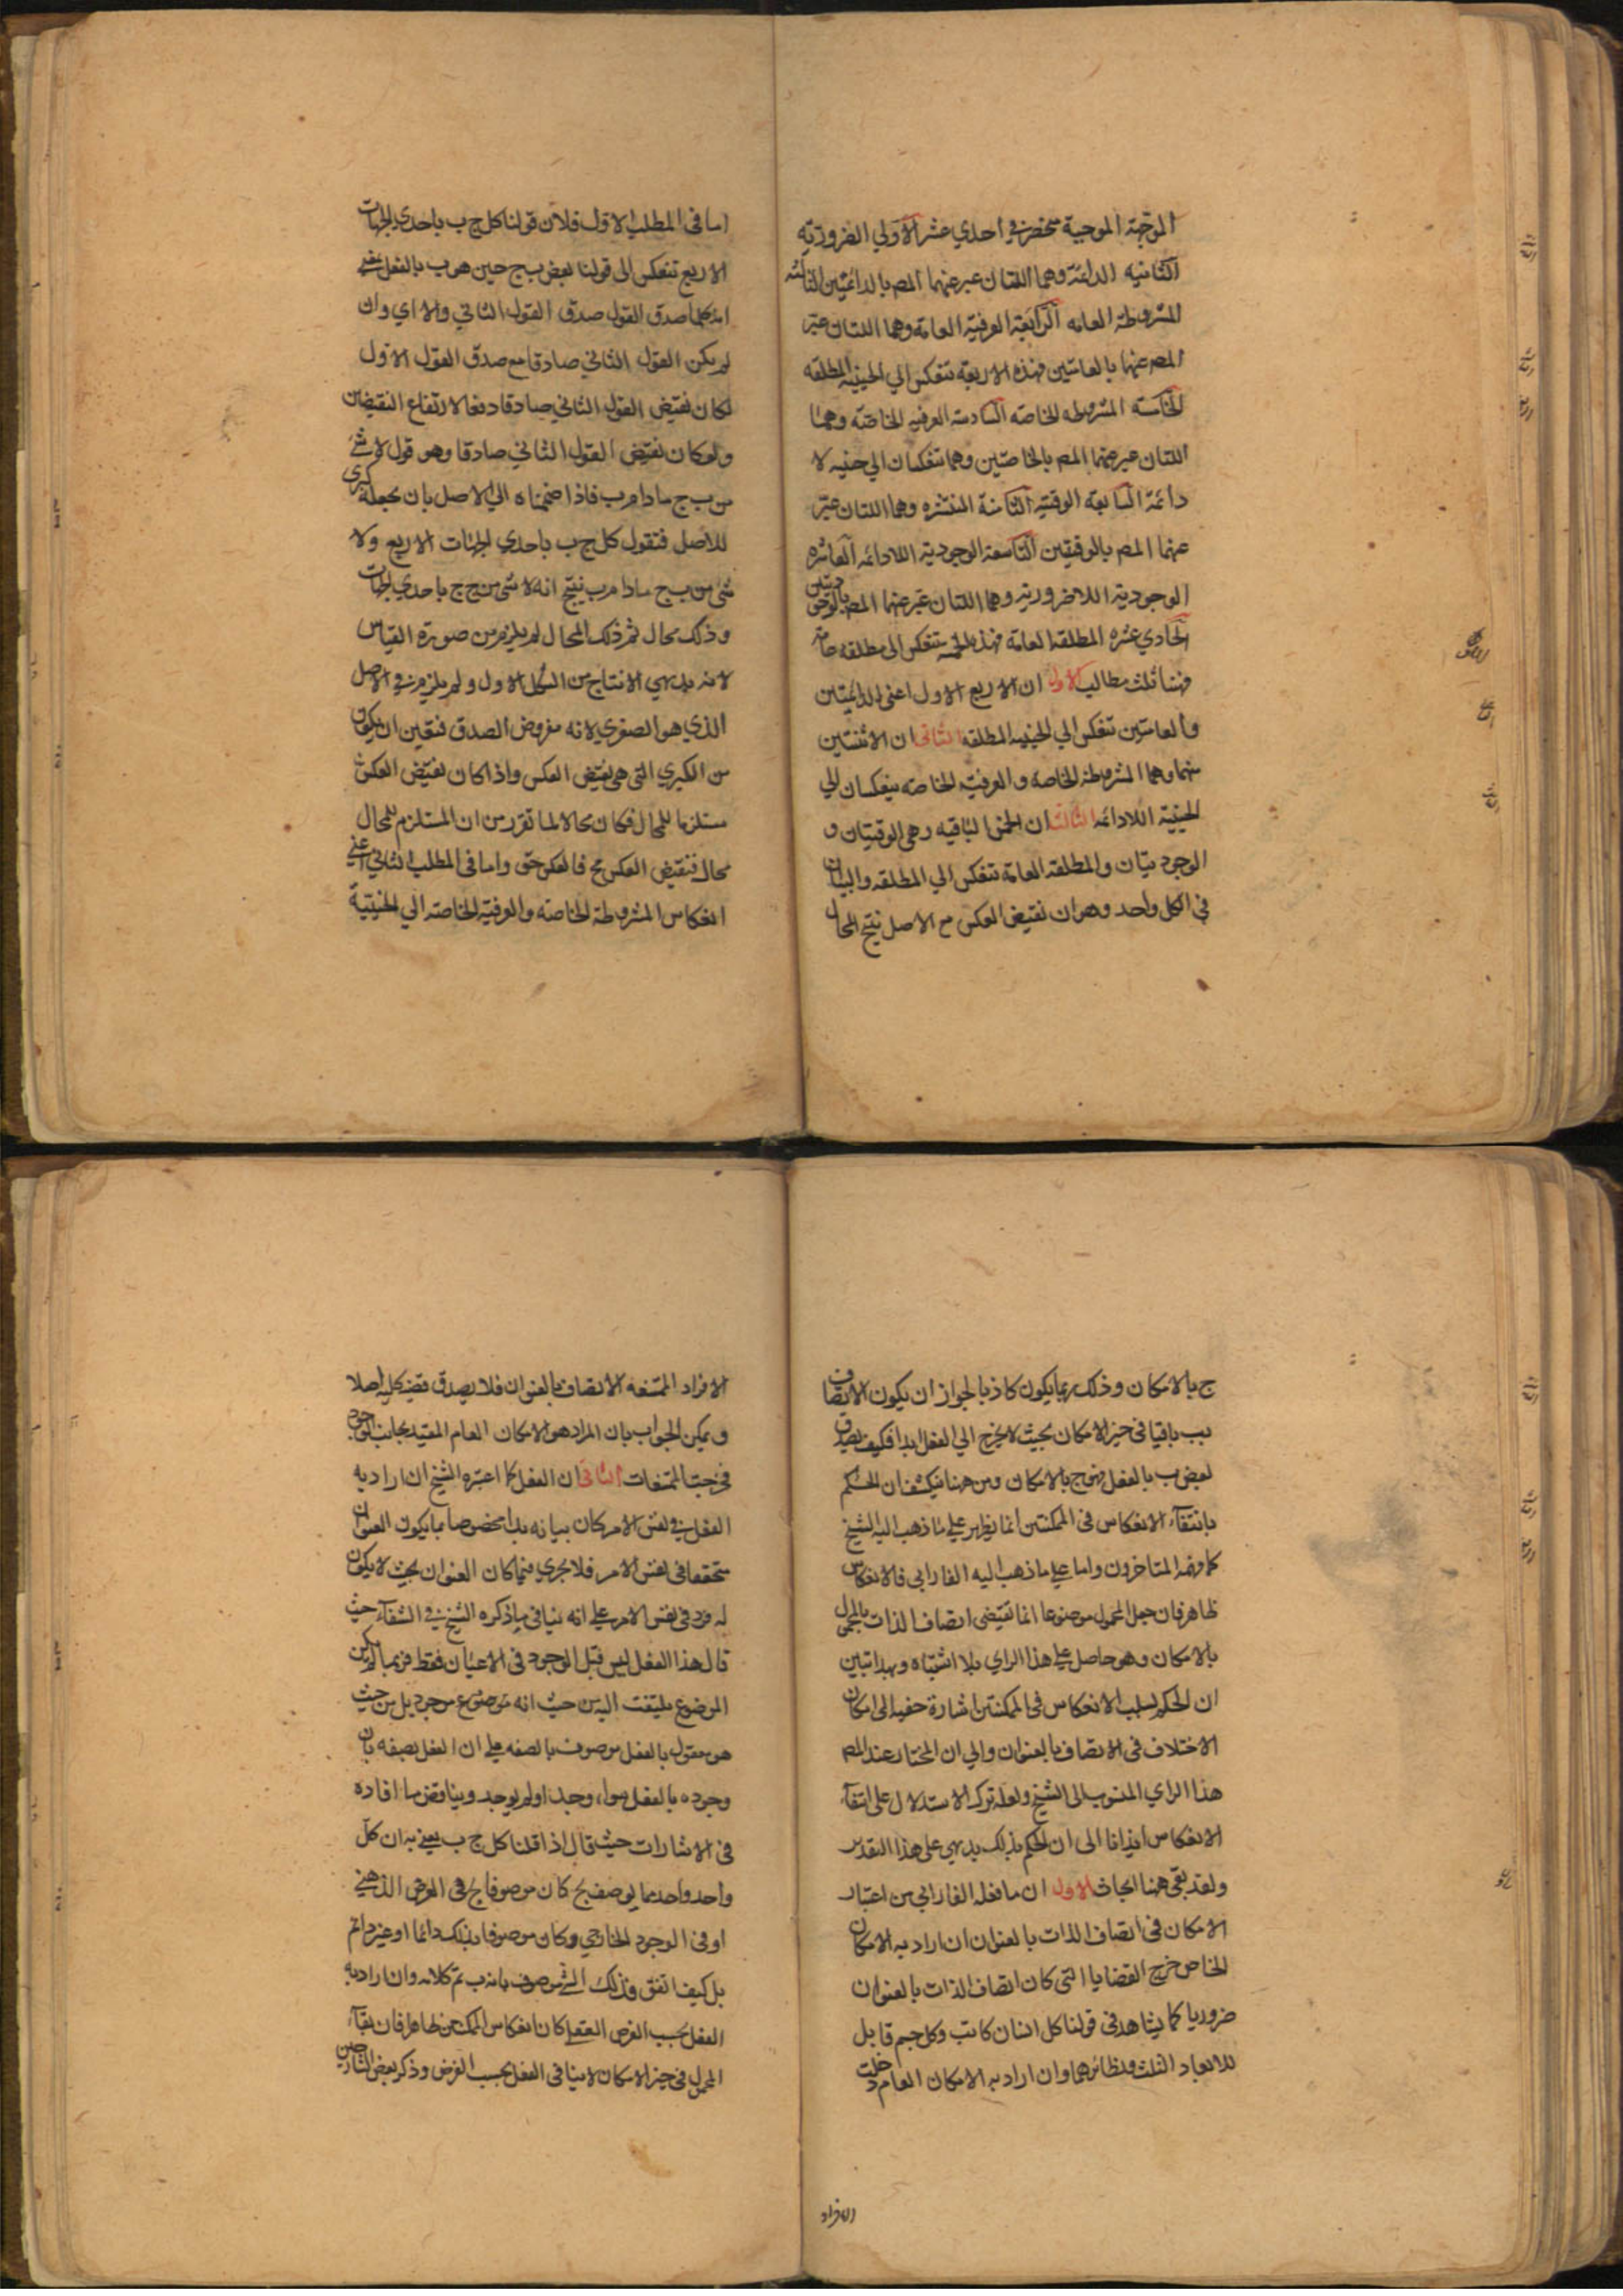 الموجهة الموجبة تنحصر في احدي عشر الاولي الضرورية
الثانيه الدائمة وهما اللتان عبر عنهما المص بالدائمتين الثالثه
المشروطة العامه الرابعة العرفية العامة وهما اللتان عبر
المص عنهما بالعامتين فهذه الاربعة تنعكس الي الحينية المطلقه
الخامسة المشروطه الخاصه السادسة العرفيه الخاصة وهما
اللتان عبر عنهما المص بالخاصتين وهما تنعكسان الي حينيه لا
دائمة السابعة الوقتيه الثامنة المنتشره وهما اللتان عبر
عنهما المص بالوقتيتين التاسعة الوجودية اللادائمه العاشره
الوجودية اللاضرورية وهما اللتان عبر عنهما المص بالوجوديتين
الحادي عشره المطلقة العامة فهذه الخمسه تنعكس الى مطلقه عامة
فهنا ثلث مطالب الاول ان الاربع الاول اعني الدائمتين
والعامتين تنعكس الي الحينيه المطلقه الثاني ان الاثنتين
منهما وهما المشروطة الخاصه والعرفية الخاصه ينعكسان الي
الحينية اللادائمه الثالث ان الخمس الباقيه وهي الوقتيتان و
الوجوديتان والمطلقة العامة تنعكس الي المطلقه والبيان
في الكل واحد وهو ان نقيض العكس مع الاصل ينتج المحال
اما في المطلب الاول فلان قولنا كل ج ب باحدي الجهات
الاربع تنعكس الى قولنا بعض ب ج حين هو ب بالفعل يعني
انه كلما صدق القول صدق القول الثاني والا اي وان
لم يكن القول الثاني صادقا مع صدق القول الاول
لكان نقيض القول الثاني صادقا دفعا لارتفاع النقيضين
ولو كان نقيض القول الثاني صادقا وهو قول لا شئ
من ب ج مادام ب فاذا ضممناه الي الاصل بان نجعله كبرى
للاصل فنقول كل ج ب باحدي الجهات الاربع ولا
شئ من ب ج مادام ب ينتج انه لا شئ من ج ج باحدي الجهات
وذلك محال ثم ذلك المحال لم يلزم من صورة القياس
لانه بديهي الانتاج من الشكل الاول ولم يلزم من الاصل
الذي هو الصغري لانه مفروض الصدق فتعين ان يكون
من الكبري التي هي نقيض العكس واذا كان نقيض العكس
مستلزما للمحال فكان محالا لما تقرر من ان المستلزم للمحال
محال فنقيض العكس مح فالعكس حق واما في المطلب الثاني اعني
انعكاس المشروطة الخاصه والعرفية الخاصه الي الحينية
ج بالامكان وذلك ربما يكون كاذبا لجواز ان يكون الاتصاف
ب ب باقيا في حيز الامكان بحيث لا يخرج الي الفعل ابدا فكيف يصدق
بعض ب بالفعل فهو ج بالامكان ومن ههنا ينكشف ان الحكم
بانتفآء الانعكاس في الممكنتين انما يظهر علي ما ذهب اليه الشيخ
كما فهمه المتاخرون واما علي ما ذهب اليه الفارابي فالانعكاس
ظاهر فان جعل المحمول موضوعا انما تقتضى اتصاف الذات بالمحمول
بالامكان وهو حاصل علي هذا الراي بلا اشتباه وبهذا تبين
ان الحكم بسلب الانعكاس في الممكنتين اشارة خفيه الى امكان
الاختلاف في الاتصاف بالعنوان والي ان المختار عند المص
هذا الراي المنسوب الى الشيخ ولعله ترك الاستدلال على انتفآء
الانعكاس ايذانا الى ان الحكم بذلك بديهي على هذا التقدير
ولقد بقي ههنا ابحاث الاول ان ما فعله الفارابي من اعتبار
الامكان في اتصاف الذات بالعنوان ان اراد به الامكان
الخاص خرج القضايا التي كان اتصاف الذات بالعنوان
ضروريا كما يشاهد في قولنا كل انسان كاتب وكل جسم قابل
للابعاد الثلث ونظائرهما وان اراد به الامكان العام دخلت
الافراد
الافراد الممتنعه الاتصاف بالعنوان فلا يصدق قضية كليه اصلا
ويمكن الجواب بان المراد هو الامكان العام المقيد بجانب الوجود
فخرجت الممتنعات الثاني ان الفعل كما اعتبره الشيخ ان اراد به
الفعل في نفس الامر كان بيانه بذا مخصوصا بما يكون العنوان
متحققا في نفس الامر فلا يجري فيما كان العنوان بحيث لا يكون
له فرد في نفس الامر علي انه ينافي ما ذكره الشيخ في الشفآء حيث
قال هذا الفعل ليس قبل الوجود في الاعيان فقط فربما لم يكن
الموضوع ملتفت اليه من حيث انه موضوع موجود بل من حيث
هو معقول بالفعل موصوف بالصفه علي ان العقل يصفه بان
وجوده بالفعل سواء وجد او لم يوجد ويناقض ما افاده
في الاشارات حيث قال اذا قلنا كل ج ب يعني به ان كل
واحد واحد مما يوصف بج كان موصوفا بج في الفرض الذهني
او في الوجود الخارجي وكان موصوفا بذلك دائما او غير دائم
بل كيف اتفق فذلك الشئ موصوف بانه ب تم كلامه وان اراد به
الفعل بحسب الفرض العقلي كان انعكاس الممكنتين ظاهرا فان بقآء
المحمول في حيز الامكان لا ينافي الفعل بحسب الفرض وذكر بعض الشارحين